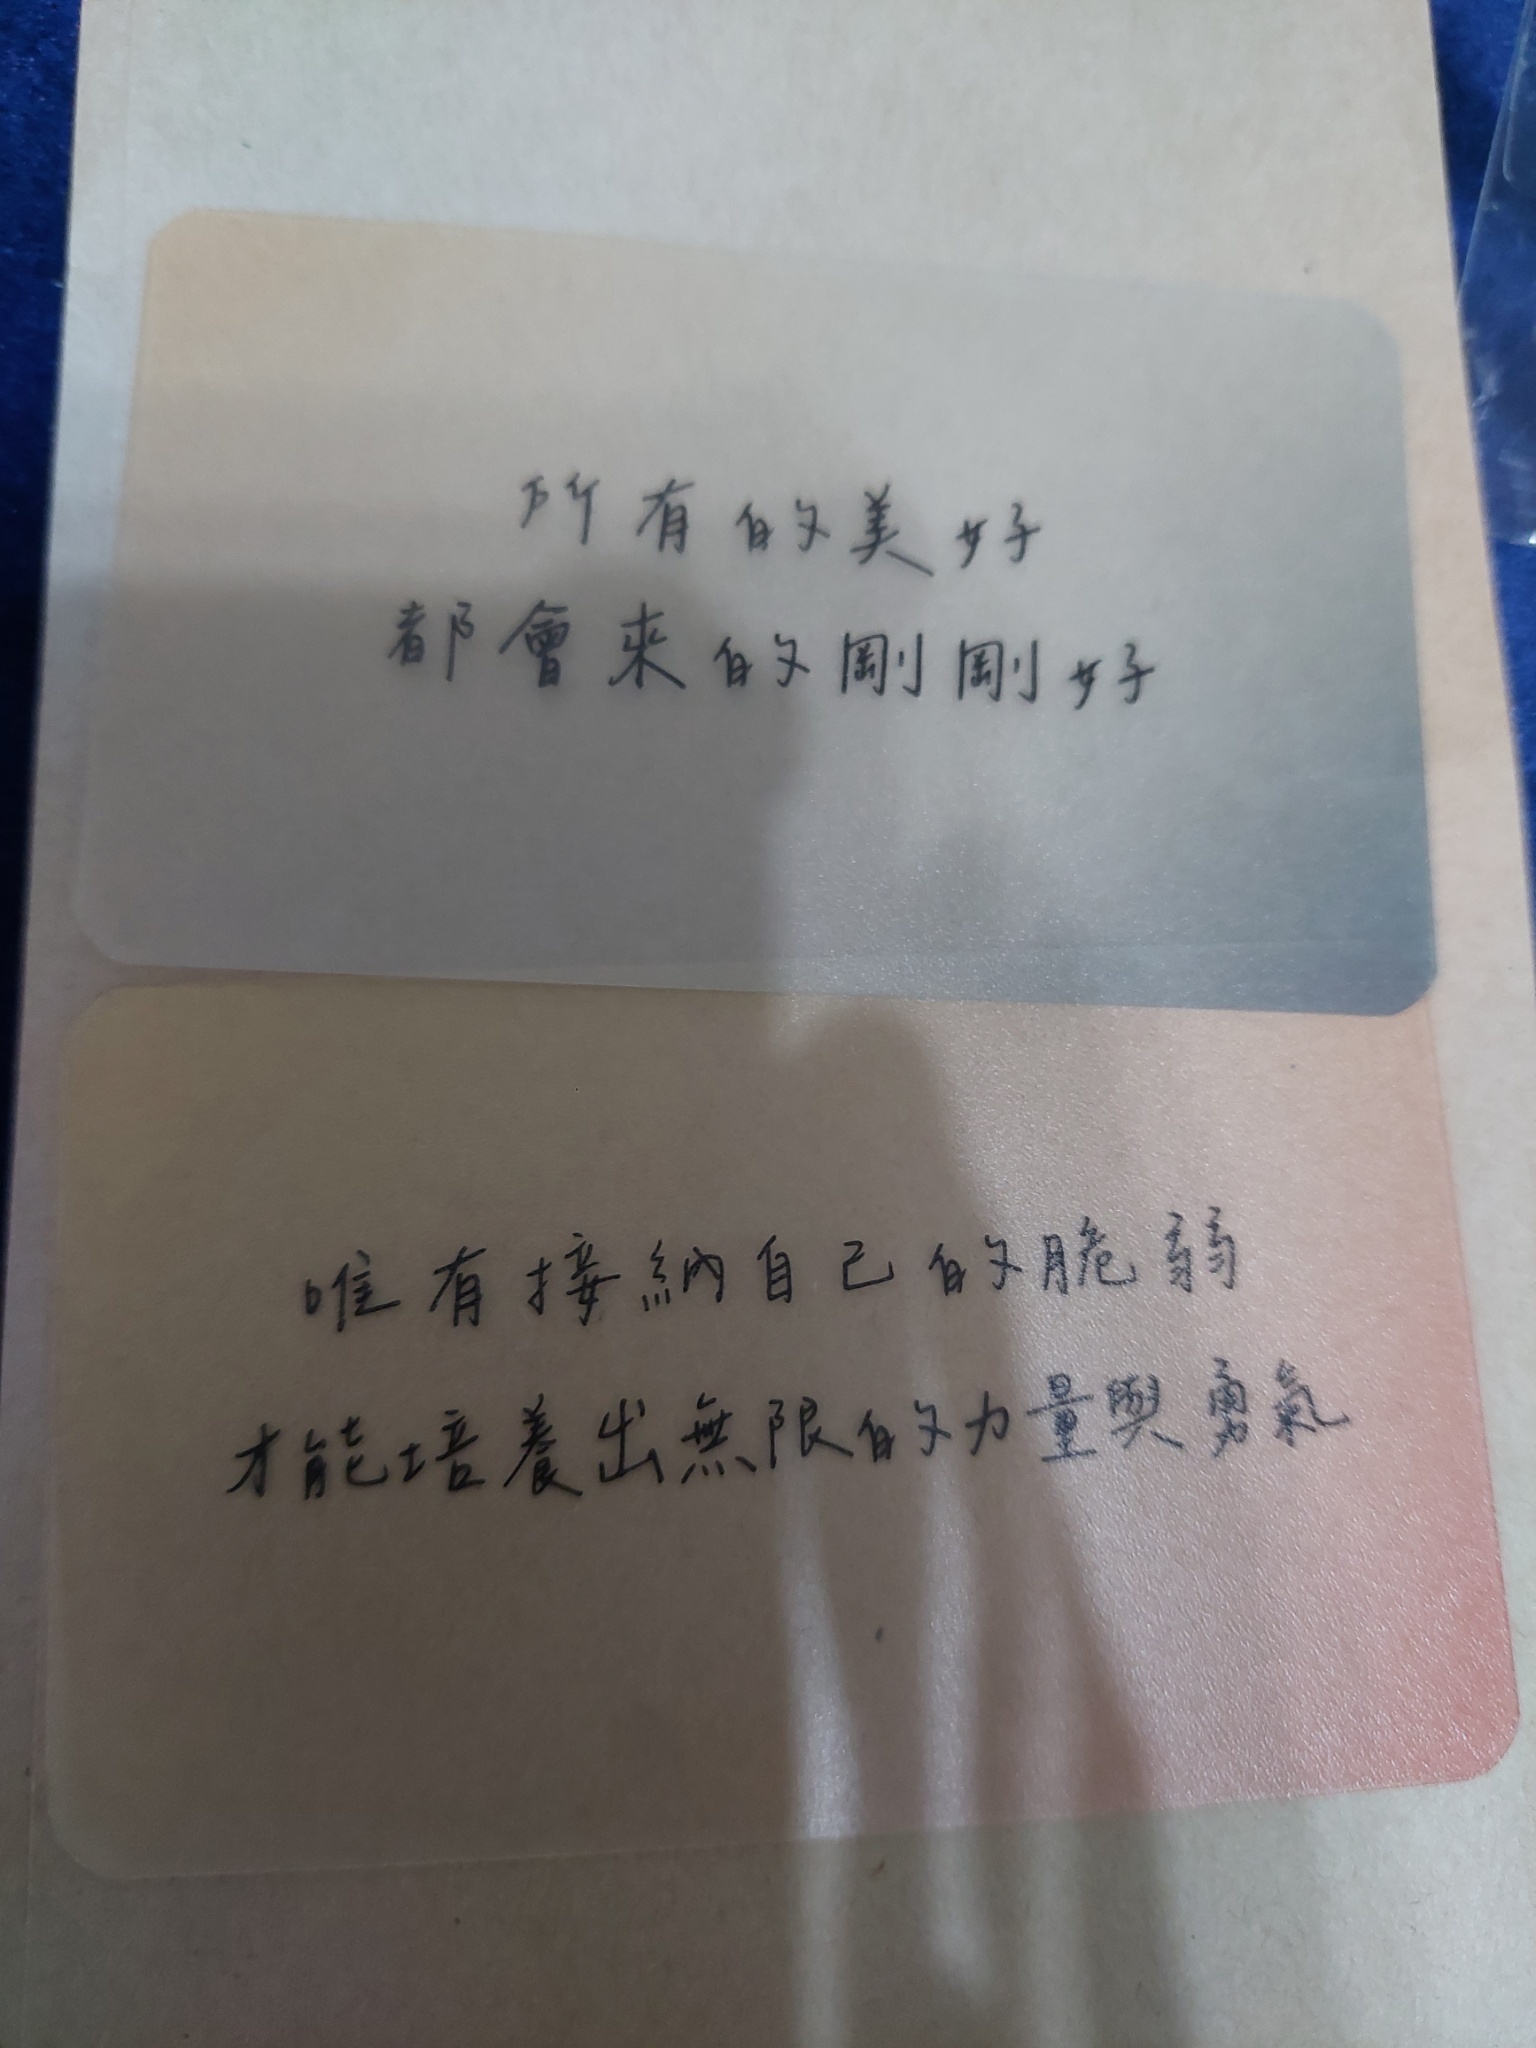 所有的美好
都會來的剛剛好
唯有接納自己的脆弱
才能培養出無限的力量與勇氣